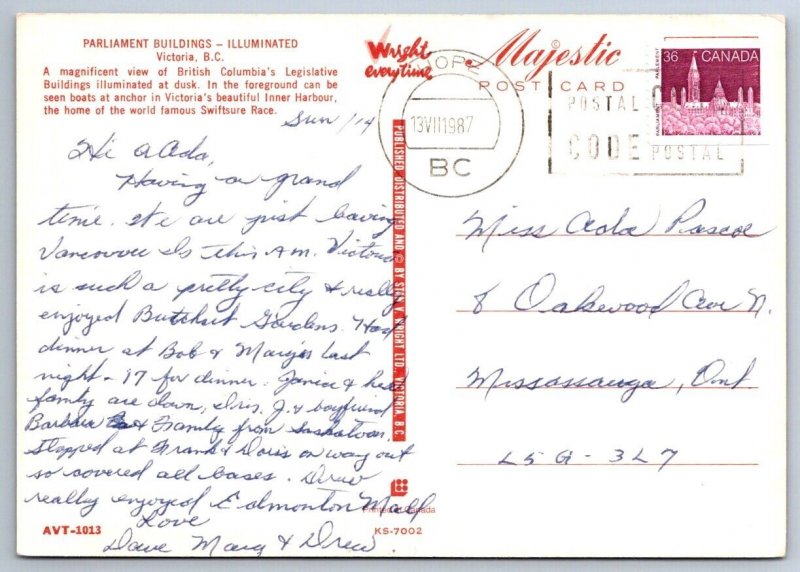 PARLIAMENT BUILDINGS – ILLUMINATED
Victoria, B.C.
A magnificent view of British Columbia's Legislative
Buildings illuminated at dusk. In the foreground can be
seen boats at anchor in Victoria's beautiful Inner Harbour,
the home of the world famous Swiftsure Race.
Sun / 14
Hi Ada,
Having a grand
time. We are just leaving
Vancouver Is this A.M. Victoria
is such a pretty city & really
enjoyed Butchart Gardens. Had
dinner at Bob & Marg's last
night – 17 for dinner. Janice & her
family are down, Dris. J. & boyfriend
Barbara & Family from Saskatoon.
Stopped at Frank & Doris on way out
so covered all bases. Drew
really enjoyed Edmonton Mall
Love
Dave Marg & Drew.
AVT-1013
Wright
everytime
Majestic
POST CARD
HOPE
13VII1987
BC
POSTAL CODE
CODE POSTAL
36 CANADA
PARLIAMENT
PARLEMENT
PUBLISHED DISTRIBUTED AND © BY STAN V. WRIGHT LTD., VICTORIA, B.C.
Miss Ada Pascoe
8 Oakwood Ave N.
Mississauga, Ont
L5G - 3L7
Printed in Canada
KS-7002